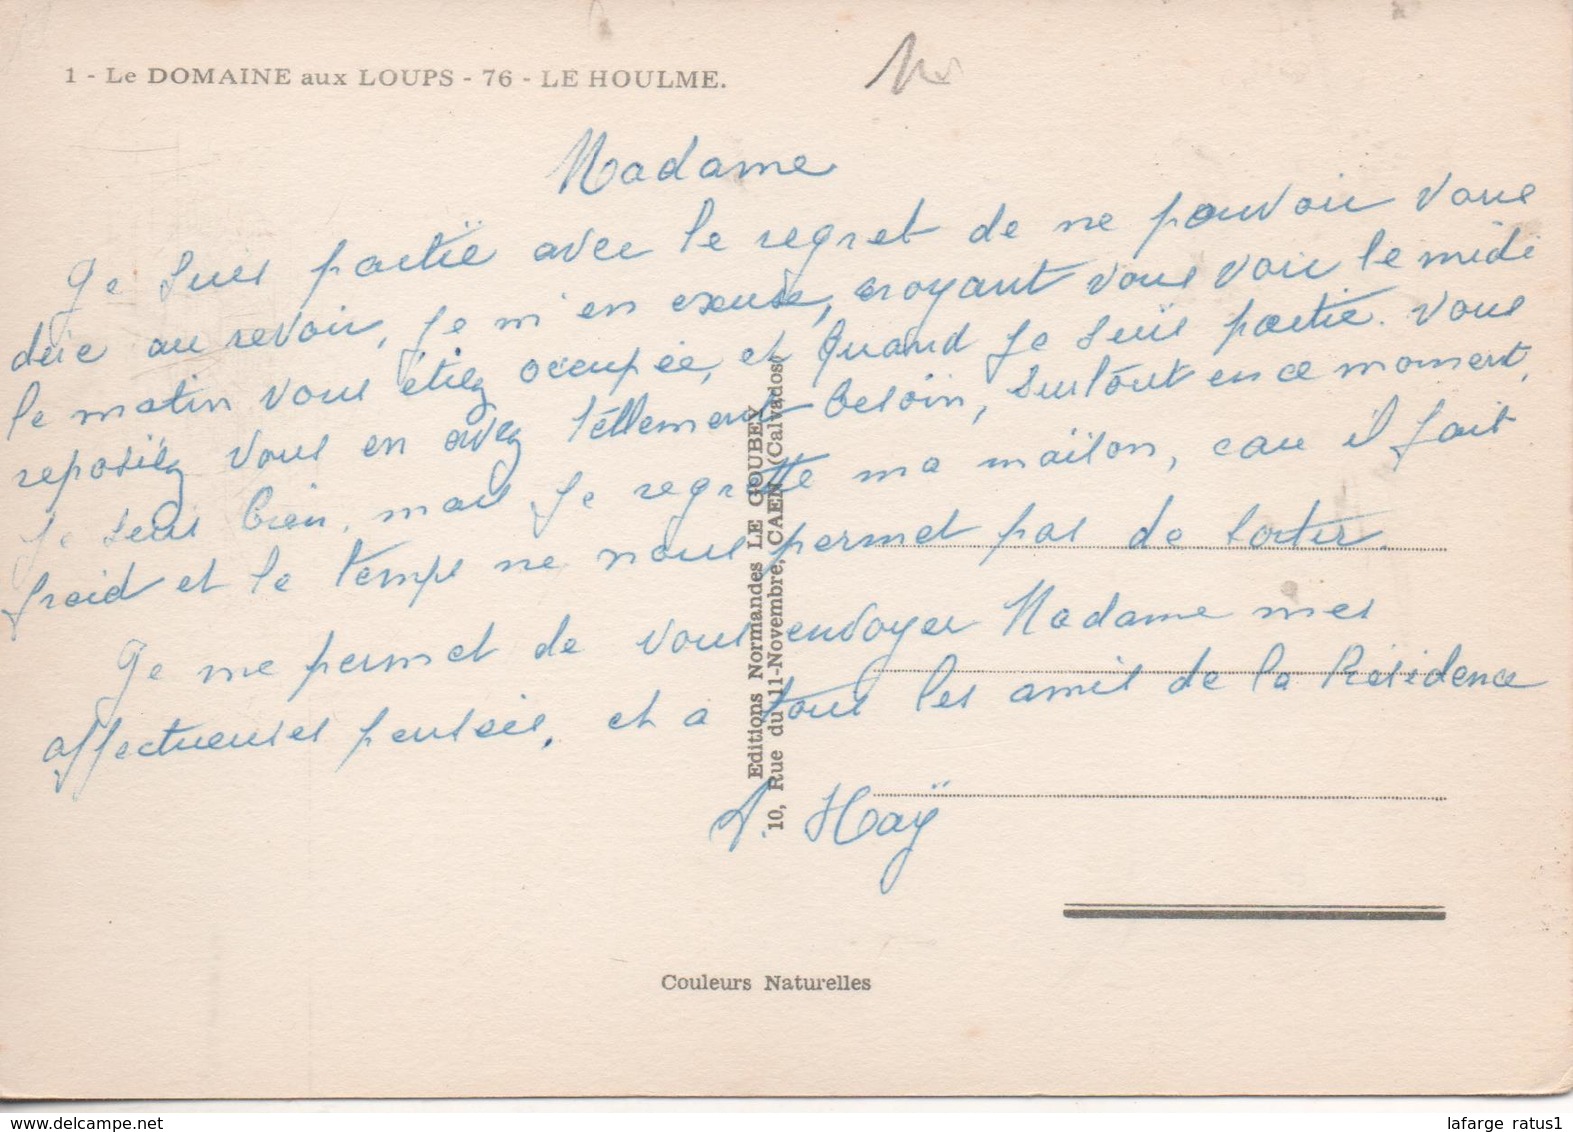 1 - Le DOMAINE aux LOUPS - 76 - LE HOULME.
Madame
Je suis partie avec le regret de ne pouvoir vous
dire au revoir, je m'en excuse, croyant vous voir le midi
le matin vous étiez occupée, et quand je suis partie. vous
reposiez vous en avez tellement besoin, surtout en ce moment,
je suis bien, mais je regrette ma maison, car il fait
froid et le temps ne nous permet pas de sortir.
Je me permet de vous envoyer Madame mes
affectueuses pensées, et a tous les amis de la Résidence
A. Haÿ
Editions Normandes LE GOUBEY
10, Rue du 11-Novembre, CAEN (Calvados)
Couleurs Naturelles
lafarge ratus1